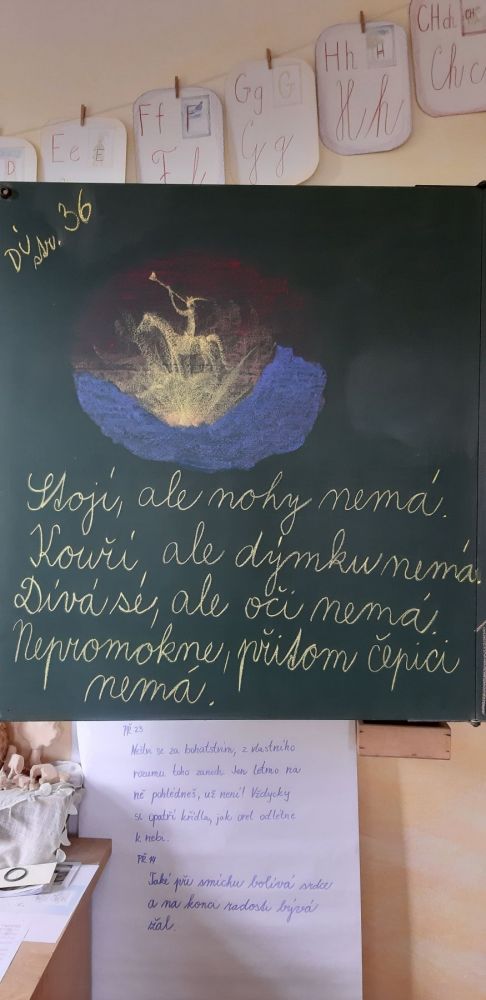 CHch CH
Ch c
Hh H
H h
Gg G
G g
Ff F
F f
Ee E
D
DÚ
str. 36
Stojí, ale nohy nemá.
Kouří ale dýmku nemá.
Dívá sé, ale oči nemá.
Nepromokne, přitom čepici
nemá.
Př. 23
se za bohatstvím, z vlastního
rozumu toho zanech. Jen letmo na
ně pohlédneš, už není! Vždycky
si opatří křídla, jak orel odletne
k nebi.
Př. 14
Také při smíchu bolívá srdce
a na konci radosti bývá
žal.
O